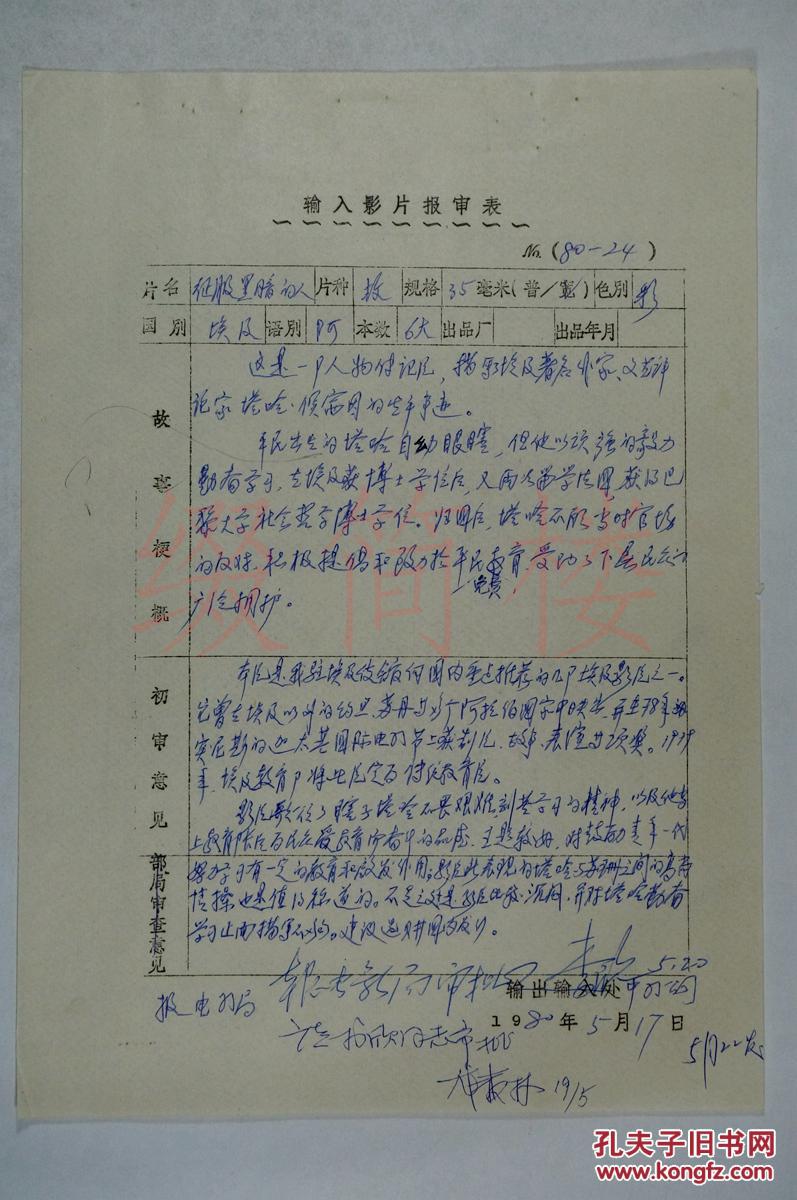 输入影片报审表
No. (80—24)
片名 征服黑暗的人 片种 故 规格 35毫米(普/宽) 色别 彩
国别 埃及 语别 阿 本数 6大 出品厂 出品年月
故事梗概
这是一部人物传记片，描写埃及著名作家、文艺评
论家塔哈·侯赛因的生平事迹。
平民出生的塔哈自幼眼瞎，但他以顽强的毅力
勤奋学习，在埃及获博士学位后，又两次留学法国，获得巴
黎大学社会哲学博士学位。归国后，塔哈不顾当时官场
的反对，积极提倡和致力于平民免费教育，受到了下层民众的
广泛拥护。
初审意见
本片是我驻埃及使馆向国内重点推荐的几部埃及影片之一。
它曾在埃及以外的约旦、苏丹等 个阿拉伯国家中映出，并在78年
实尼斯的 国际电影节上获制片、故事、表演等项奖。1979
年，埃及教育部将此片定为传统教育片。
影片歌颂了瞎子塔哈不畏艰难，刻苦学习的精神，以及他当
上教育大臣后为民众受教育而奋斗的品德。主题较好，对鼓励青年一代
部局审查意见
努力学习有一定的教育和启发作用。影片所表现的塔哈与苏珊之间的高尚
情操也是值得称道的。不足之处是影片比较沉闷，并对塔哈勤奋
学习上面描写不够。建议选购在国内发行。
5.20
报电影局
输出输入处 中影公司
1980年5月17日
5月22发
19/5
缀简楼
孔夫子旧书网
www.kongfz.com